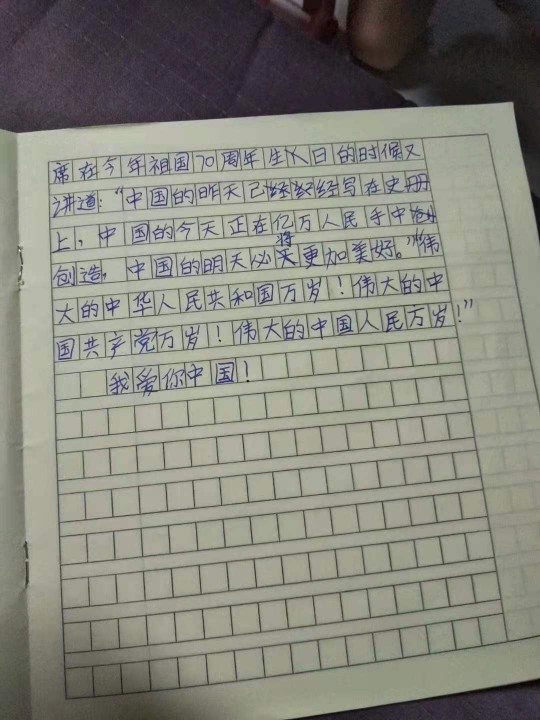 席在今年祖国70周年生日的时候又
讲道:“中国的昨天已经写在史册
上,中国的今天正在亿万人民手中
创造,中国的明天必将更加美好。”“伟
大的中华人民共和国万岁!伟大的中
国共产党万岁!伟大的中国人民万岁!”
我爱你中国!